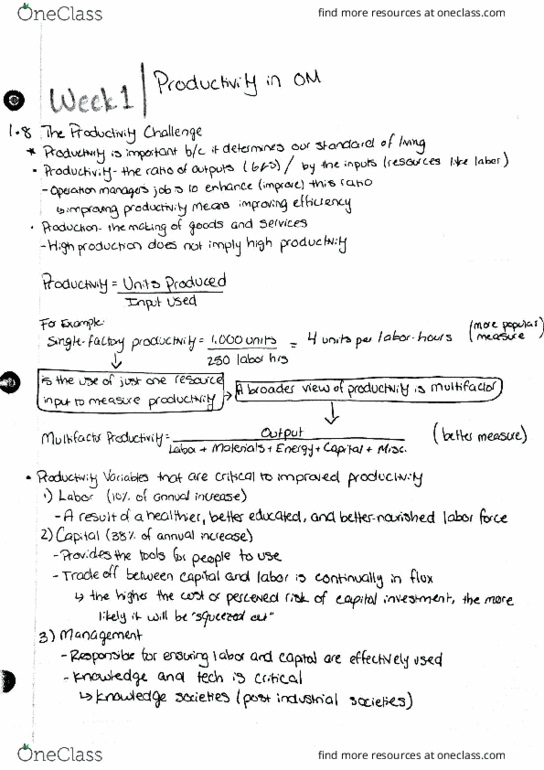 OneClass
find more resources at oneclass.com
Week 1 | Productivity in OM
1.8 The Productivity Challenge
* Productivity is important b/c it determines our standard of living
• Productivity - the ratio of outputs (G&S) / by the inputs (resources like labor)
- Operation managers job is to enhance (improve) this ratio
↳ improving productivity means improving efficiency
• Production - the making of goods and services
- High production does not imply high productivity
Productivity = Units Produced
Input Used
For Example:
Single-factory productivity = 1,000 units = 4 units per labor-hours (more popular measure)
250 labor hrs
is the use of just one resource input to measure productivity → A broader view of productivity is multifactor
Multifactor Productivity = Output (better measure)
Labor + Materials + Energy + Capital + Misc.
• Productivity Variables that are critical to improved productivity
1) Labor (10% of annual increase)
- A result of a healthier, better educated, and better-nourished labor force
2) Capital (38% of annual increase)
- Provides the tools for people to use
- Trade off between capital and labor is continually in flux
↳ the higher the cost or perceived risk of capital investment, the more
likely it will be "squeezed out"
3) Management
- Responsible for ensuring labor and capital are effectively used
- Knowledge and tech is critical
↳ Knowledge societies (post industrial societies)
OneClass
find more resources at oneclass.com